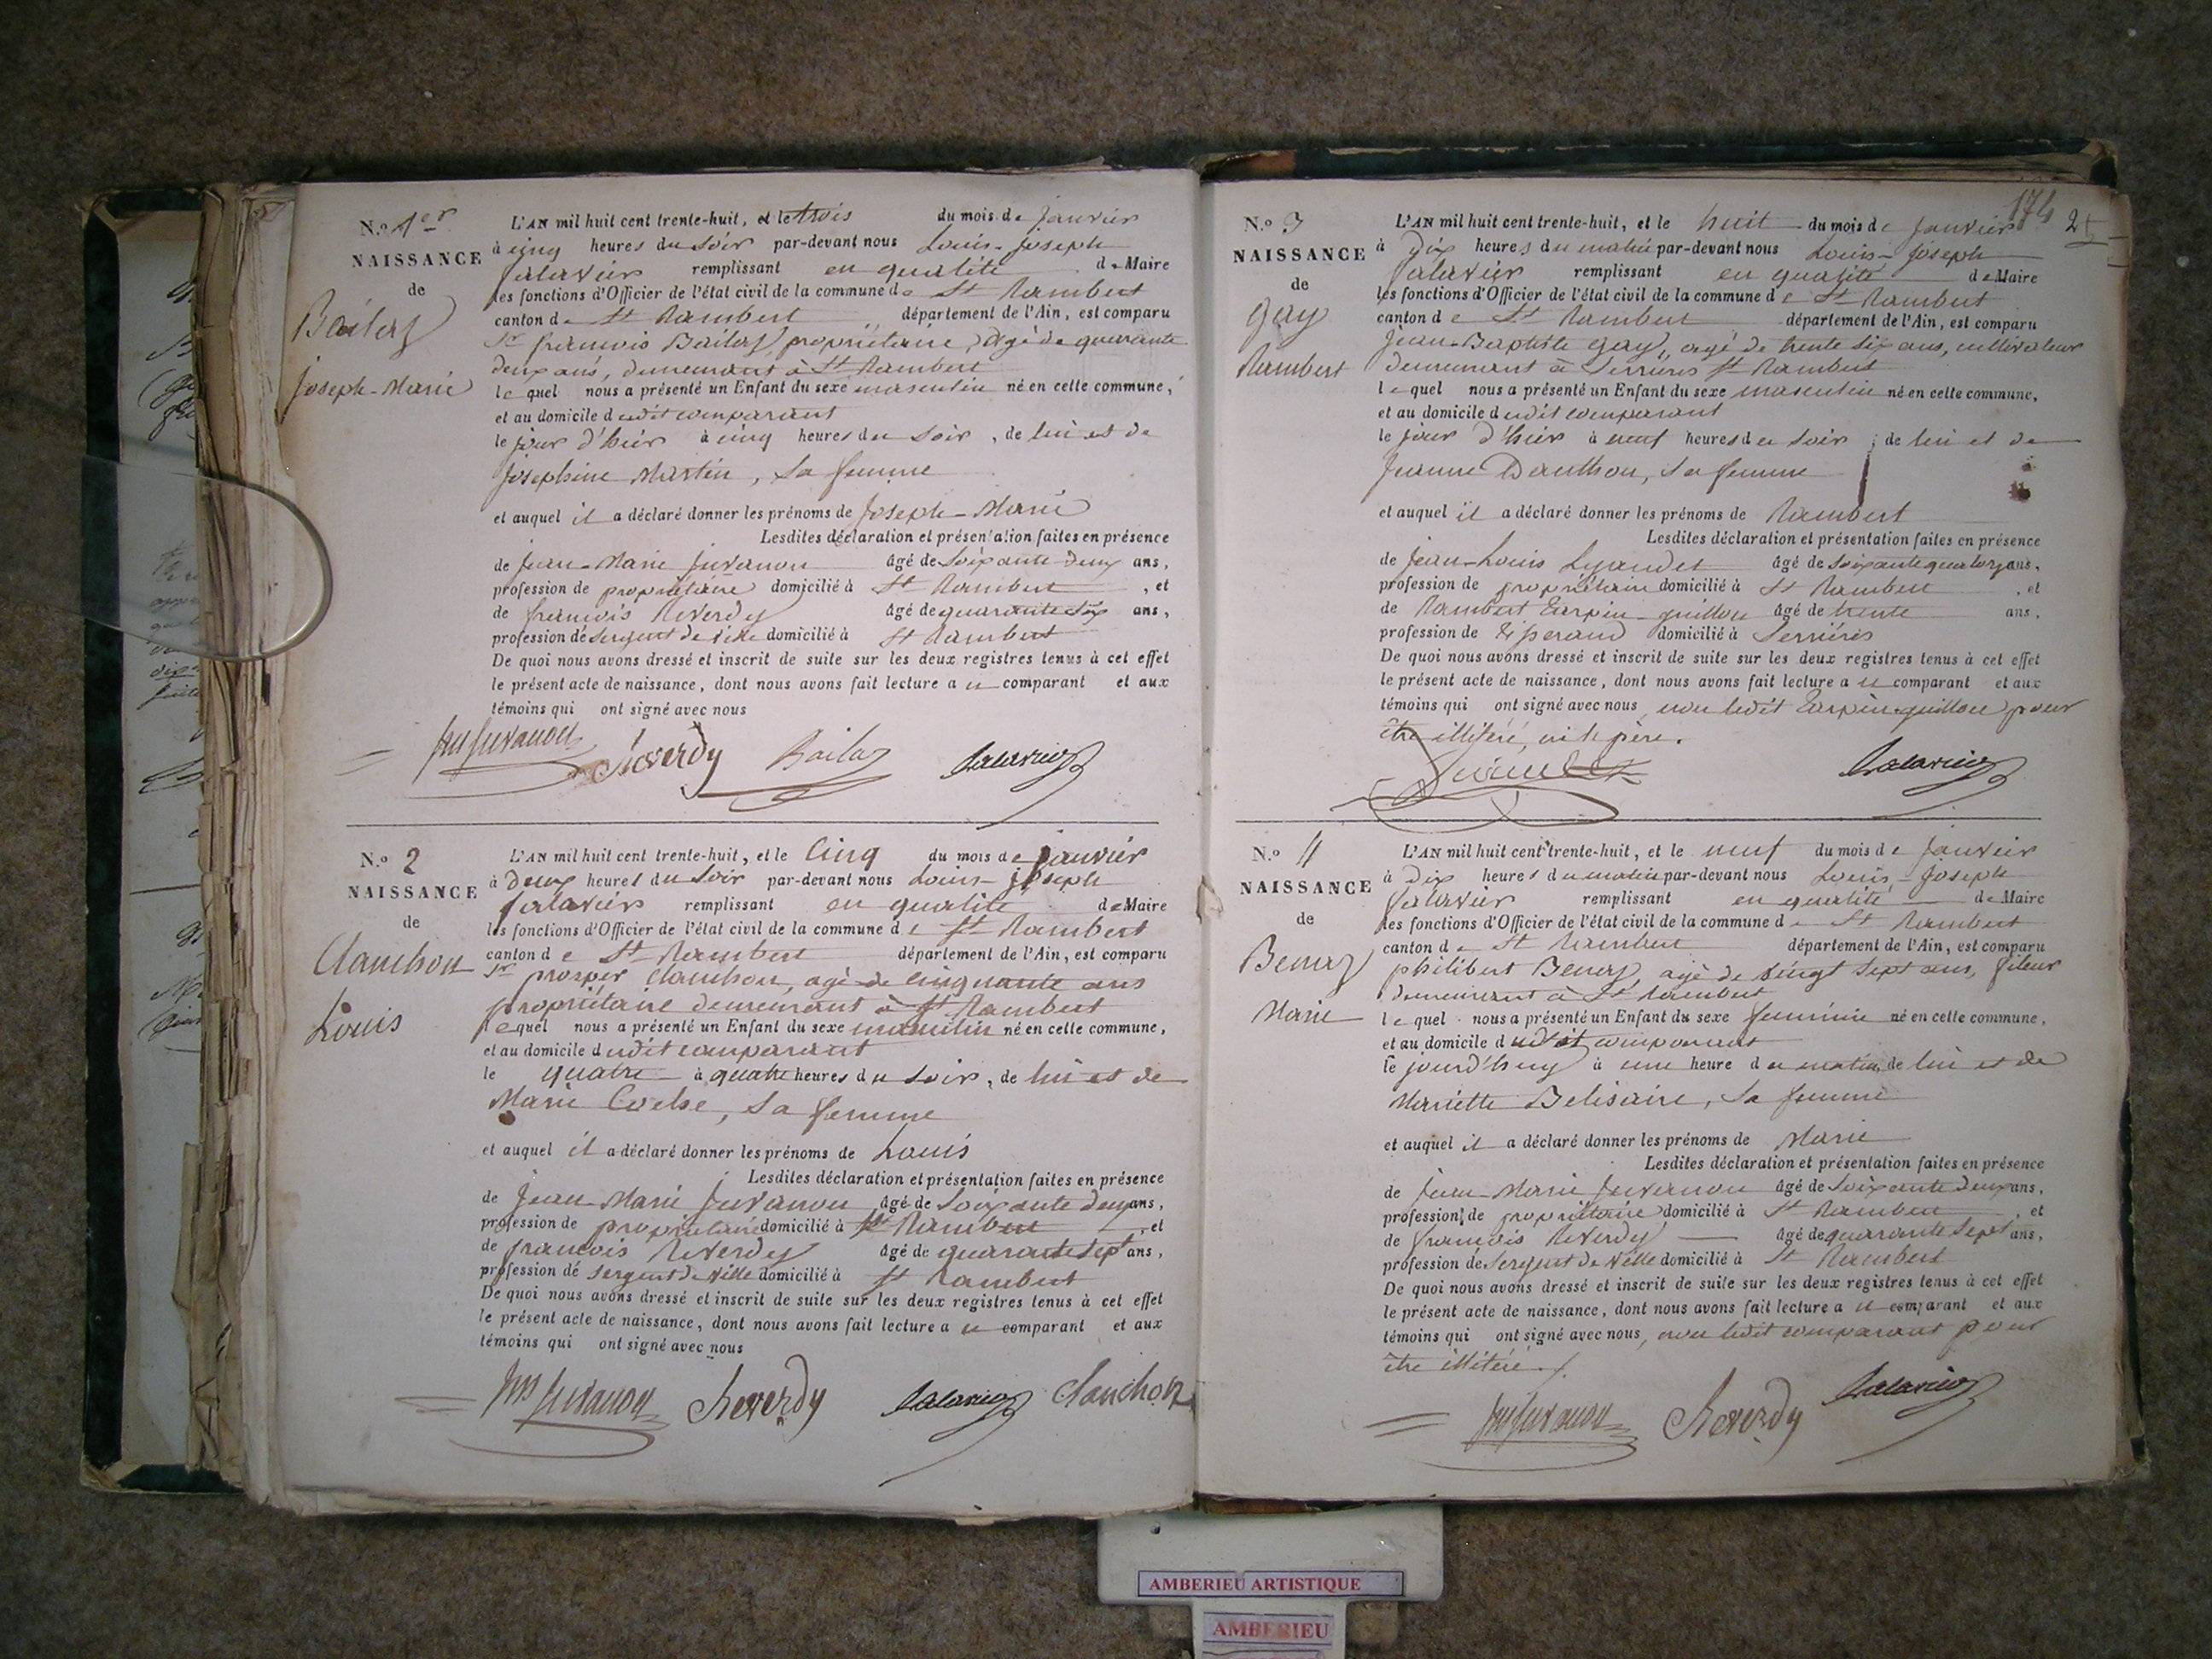 N.o 1er
NAISSANCE
de
Bailaz
Joseph-Marie
L'AN mil huit cent trente-huit, et le trois du mois de Janvier
à cinq heures du Soir par-devant nous Louis-Joseph
remplissant en qualité de Maire
les fonctions d'Officier de l'état civil de la commune de St Rambert
canton de St Rambert département de l'Ain, est comparu
Sr francois Bailaz, propriétaire, agé de quarante
deux ans, demeurant à St Rambert
lequel nous a présenté un Enfant du sexe masculin né en cette commune,
et au domicile dudit comparant
le jour d'hier à cinq heures du Soir, de lui et de
Josephine Martin, Sa femme
et auquel il a déclaré donner les prénoms de Joseph-Marie
Lesdites déclaration et présentation faites en présence
de Jean-Marie Juvanon âgé de Soixante-deux ans,
profession de propriétaire domicilié à St Rambert, et
de francois Reverdy âgé de quarante six ans,
profession de Sergent de ville domicilié à St Rambert
De quoi nous avons dressé et inscrit de suite sur les deux registres tenus à cet effet
le présent acte de naissance, dont nous avons fait lecture a u comparant et aux
témoins qui ont signé avec nous
Juvanon Reverdy Bailaz
N.o 2
NAISSANCE
de
Clanchon
Louis
L'AN mil huit cent trente-huit, et le Cinq du mois de Janvier
à Deux heures du Soir par-devant nous Louis-Joseph
remplissant en qualité de Maire
les fonctions d'Officier de l'état civil de la commune de St Rambert
canton de St Rambert département de l'Ain, est comparu
Sr prosper Clanchon, agé de cinquante ans
propriétaire demeurant à St Rambert
lequel nous a présenté un Enfant du sexe masculin né en cette commune,
et au domicile dudit comparant
le quatre à quatre heures du Soir, de lui et de
Marie, Sa femme
et auquel il a déclaré donner les prénoms de Louis
Lesdites déclaration et présentation faites en présence
de Jean-Marie Juvanon âgé de Soixante deux ans,
profession de propriétaire domicilié à St Rambert, et
de francois Reverdy âgé de quarante sept ans,
profession de Sergent de ville domicilié à St Rambert
De quoi nous avons dressé et inscrit de suite sur les deux registres tenus à cet effet
le présent acte de naissance, dont nous avons fait lecture a u comparant et aux
témoins qui ont signé avec nous
Juvanon Reverdy Clanchon
174
N.o 3
NAISSANCE
de
Gay
Rambert
L'AN mil huit cent trente-huit, et le huit du mois de Janvier
à Dix heures du matin par-devant nous Louis-Joseph
remplissant en qualité de Maire
les fonctions d'Officier de l'état civil de la commune de St Rambert
canton de St Rambert département de l'Ain, est comparu
Jean-Baptiste Gay, agé de trente six ans, cultivateur
demeurant à Serrieres St Rambert
lequel nous a présenté un Enfant du sexe masculin né en cette commune,
et au domicile dudit comparant
le jour d'hier à neuf heures du Soir, de lui et de
Jeanne Danthon, Sa femme
et auquel il a déclaré donner les prénoms de Rambert
Lesdites déclaration et présentation faites en présence
de Jean-Louis âgé de Soixante quatorze ans,
profession de propriétaire domicilié à St Rambert, et
de Rambert Tarpin-guillon âgé de trente ans,
profession de Tisserand domicilié à Serrières
De quoi nous avons dressé et inscrit de suite sur les deux registres tenus à cet effet
le présent acte de naissance, dont nous avons fait lecture a u comparant et aux
témoins qui ont signé avec nous, non ledit Tarpin-guillon pour
être illitéré, ni le père.
N.o 4
NAISSANCE
de
Benaz
Marie
L'AN mil huit cent trente-huit, et le neuf du mois de Janvier
à Dix heures du matin par-devant nous Louis-Joseph
remplissant en qualité de Maire
les fonctions d'Officier de l'état civil de la commune de St Rambert
canton de St Rambert département de l'Ain, est comparu
philibert Benaz, agé de vingt sept ans, fileur
demeurant à St Rambert
lequel nous a présenté un Enfant du sexe feminin né en cette commune,
et au domicile dudit comparant
le jourd'huy à une heure du matin, de lui et de
Mariette Belisaire, Sa femme
et auquel il a déclaré donner les prénoms de Marie
Lesdites déclaration et présentation faites en présence
de Jean-Marie Juvanon âgé de Soixante deux ans,
profession de propriétaire domicilié à St Rambert, et
de francois Reverdy âgé de quarante sept ans,
profession de Sergent de ville domicilié à St Rambert
De quoi nous avons dressé et inscrit de suite sur les deux registres tenus à cet effet
le présent acte de naissance, dont nous avons fait lecture a u comparant et aux
témoins qui ont signé avec nous, non ledit comparant pour
être illitéré.
Juvanon Reverdy
AMBERIEU ARTISTIQUE
AMBERIEU